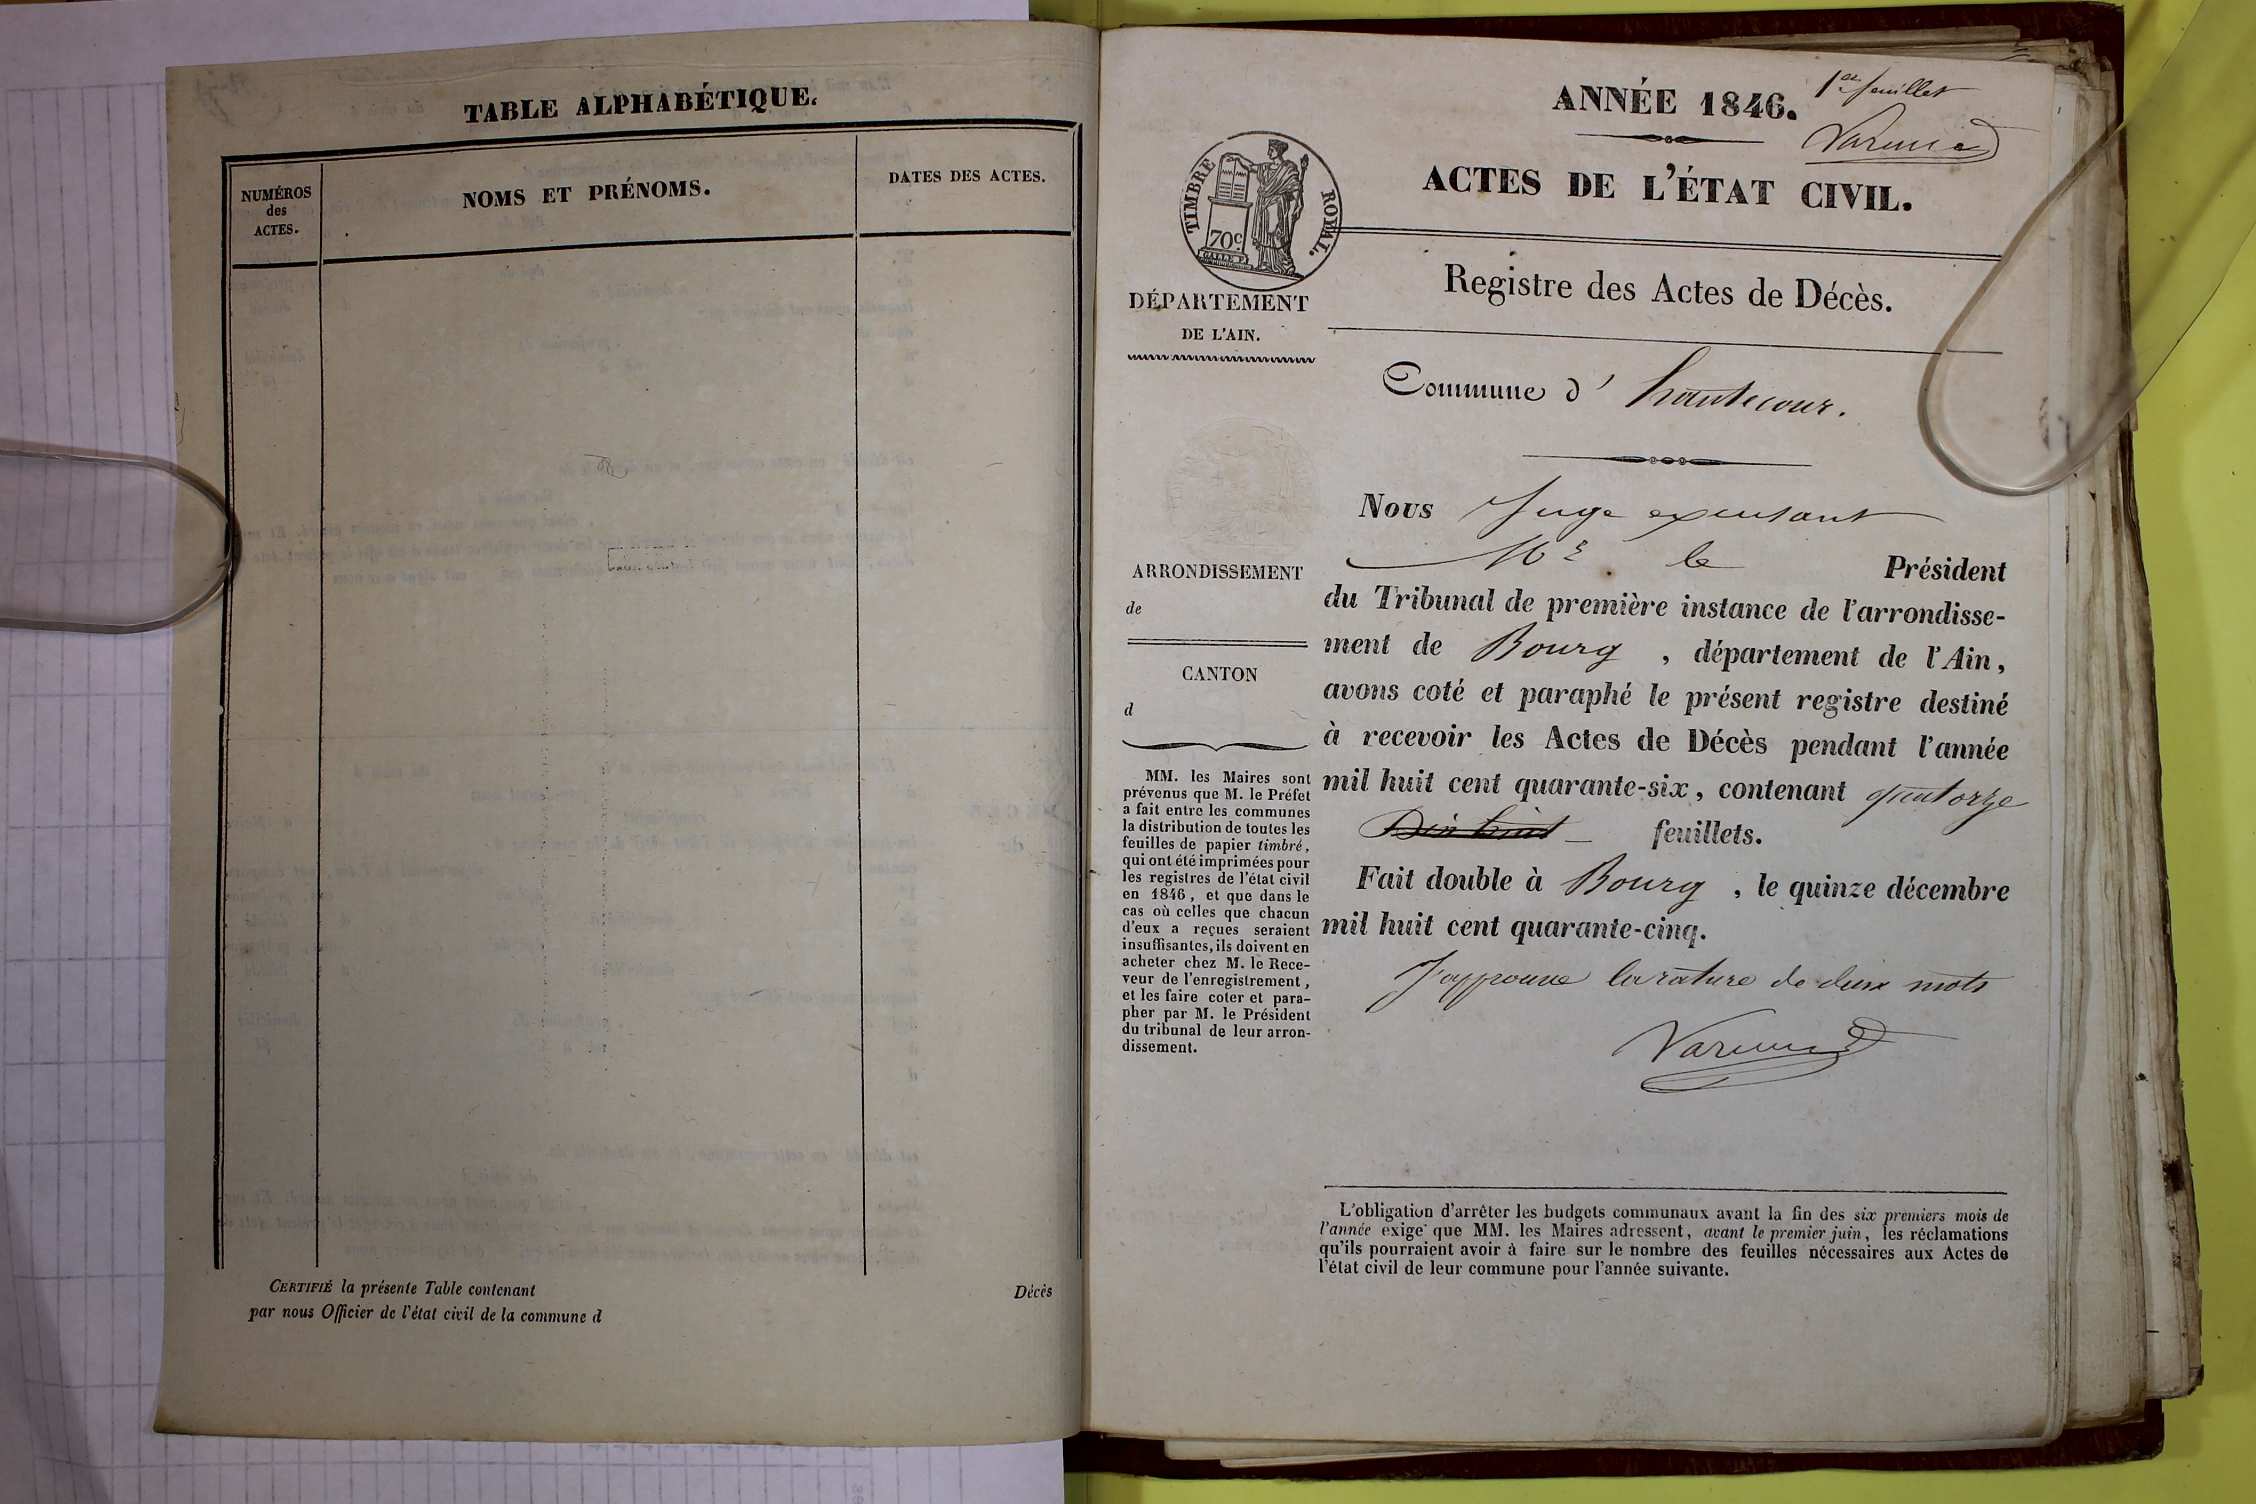 TABLE ALPHABÉTIQUE.
NUMÉROS
des
ACTES.
NOMS ET PRÉNOMS.
DATES DES ACTES.
CERTIFIÉ la présente Table contenant Décès
par nous Officier de l'état civil de la commune d
1er feuillet
ANNÉE 1846.
ACTES DE L'ÉTAT CIVIL.
TIMBRE ROYAL.
70c
DÉPARTEMENT
DE L'AIN.
Registre des Actes de Décès.
Commune d' hautecour.
ARRONDISSEMENT
de
CANTON
d
MM. les Maires sont
prévenus que M. le Préfet
a fait entre les communes
la distribution de toutes les
feuilles de papier timbré,
qui ont été imprimées pour
les registres de l'état civil
en 1846, et que dans le
cas où celles que chacun
d'eux a reçues seraient
insuffisantes, ils doivent en
acheter chez M. le Rece-
veur de l'enregistrement,
et les faire coter et para-
pher par M. le Président
du tribunal de leur arron-
dissement.
Nous Juge
Mr le Président
du Tribunal de première instance de l'arrondisse-
ment de Bourg, département de l'Ain,
avons coté et paraphé le présent registre destiné
à recevoir les Actes de Décès pendant l'année
mil huit cent quarante-six, contenant quatorze
feuillets.
Fait double à Bourg, le quinze décembre
mil huit cent quarante-cinq.
J'approuve la rature de deux mots
L'obligation d'arrêter les budgets communaux avant la fin des six premiers mois de
l'année exige que MM. les Maires adressent, avant le premier juin, les réclamations
qu'ils pourraient avoir à faire sur le nombre des feuilles nécessaires aux Actes de
l'état civil de leur commune pour l'année suivante.